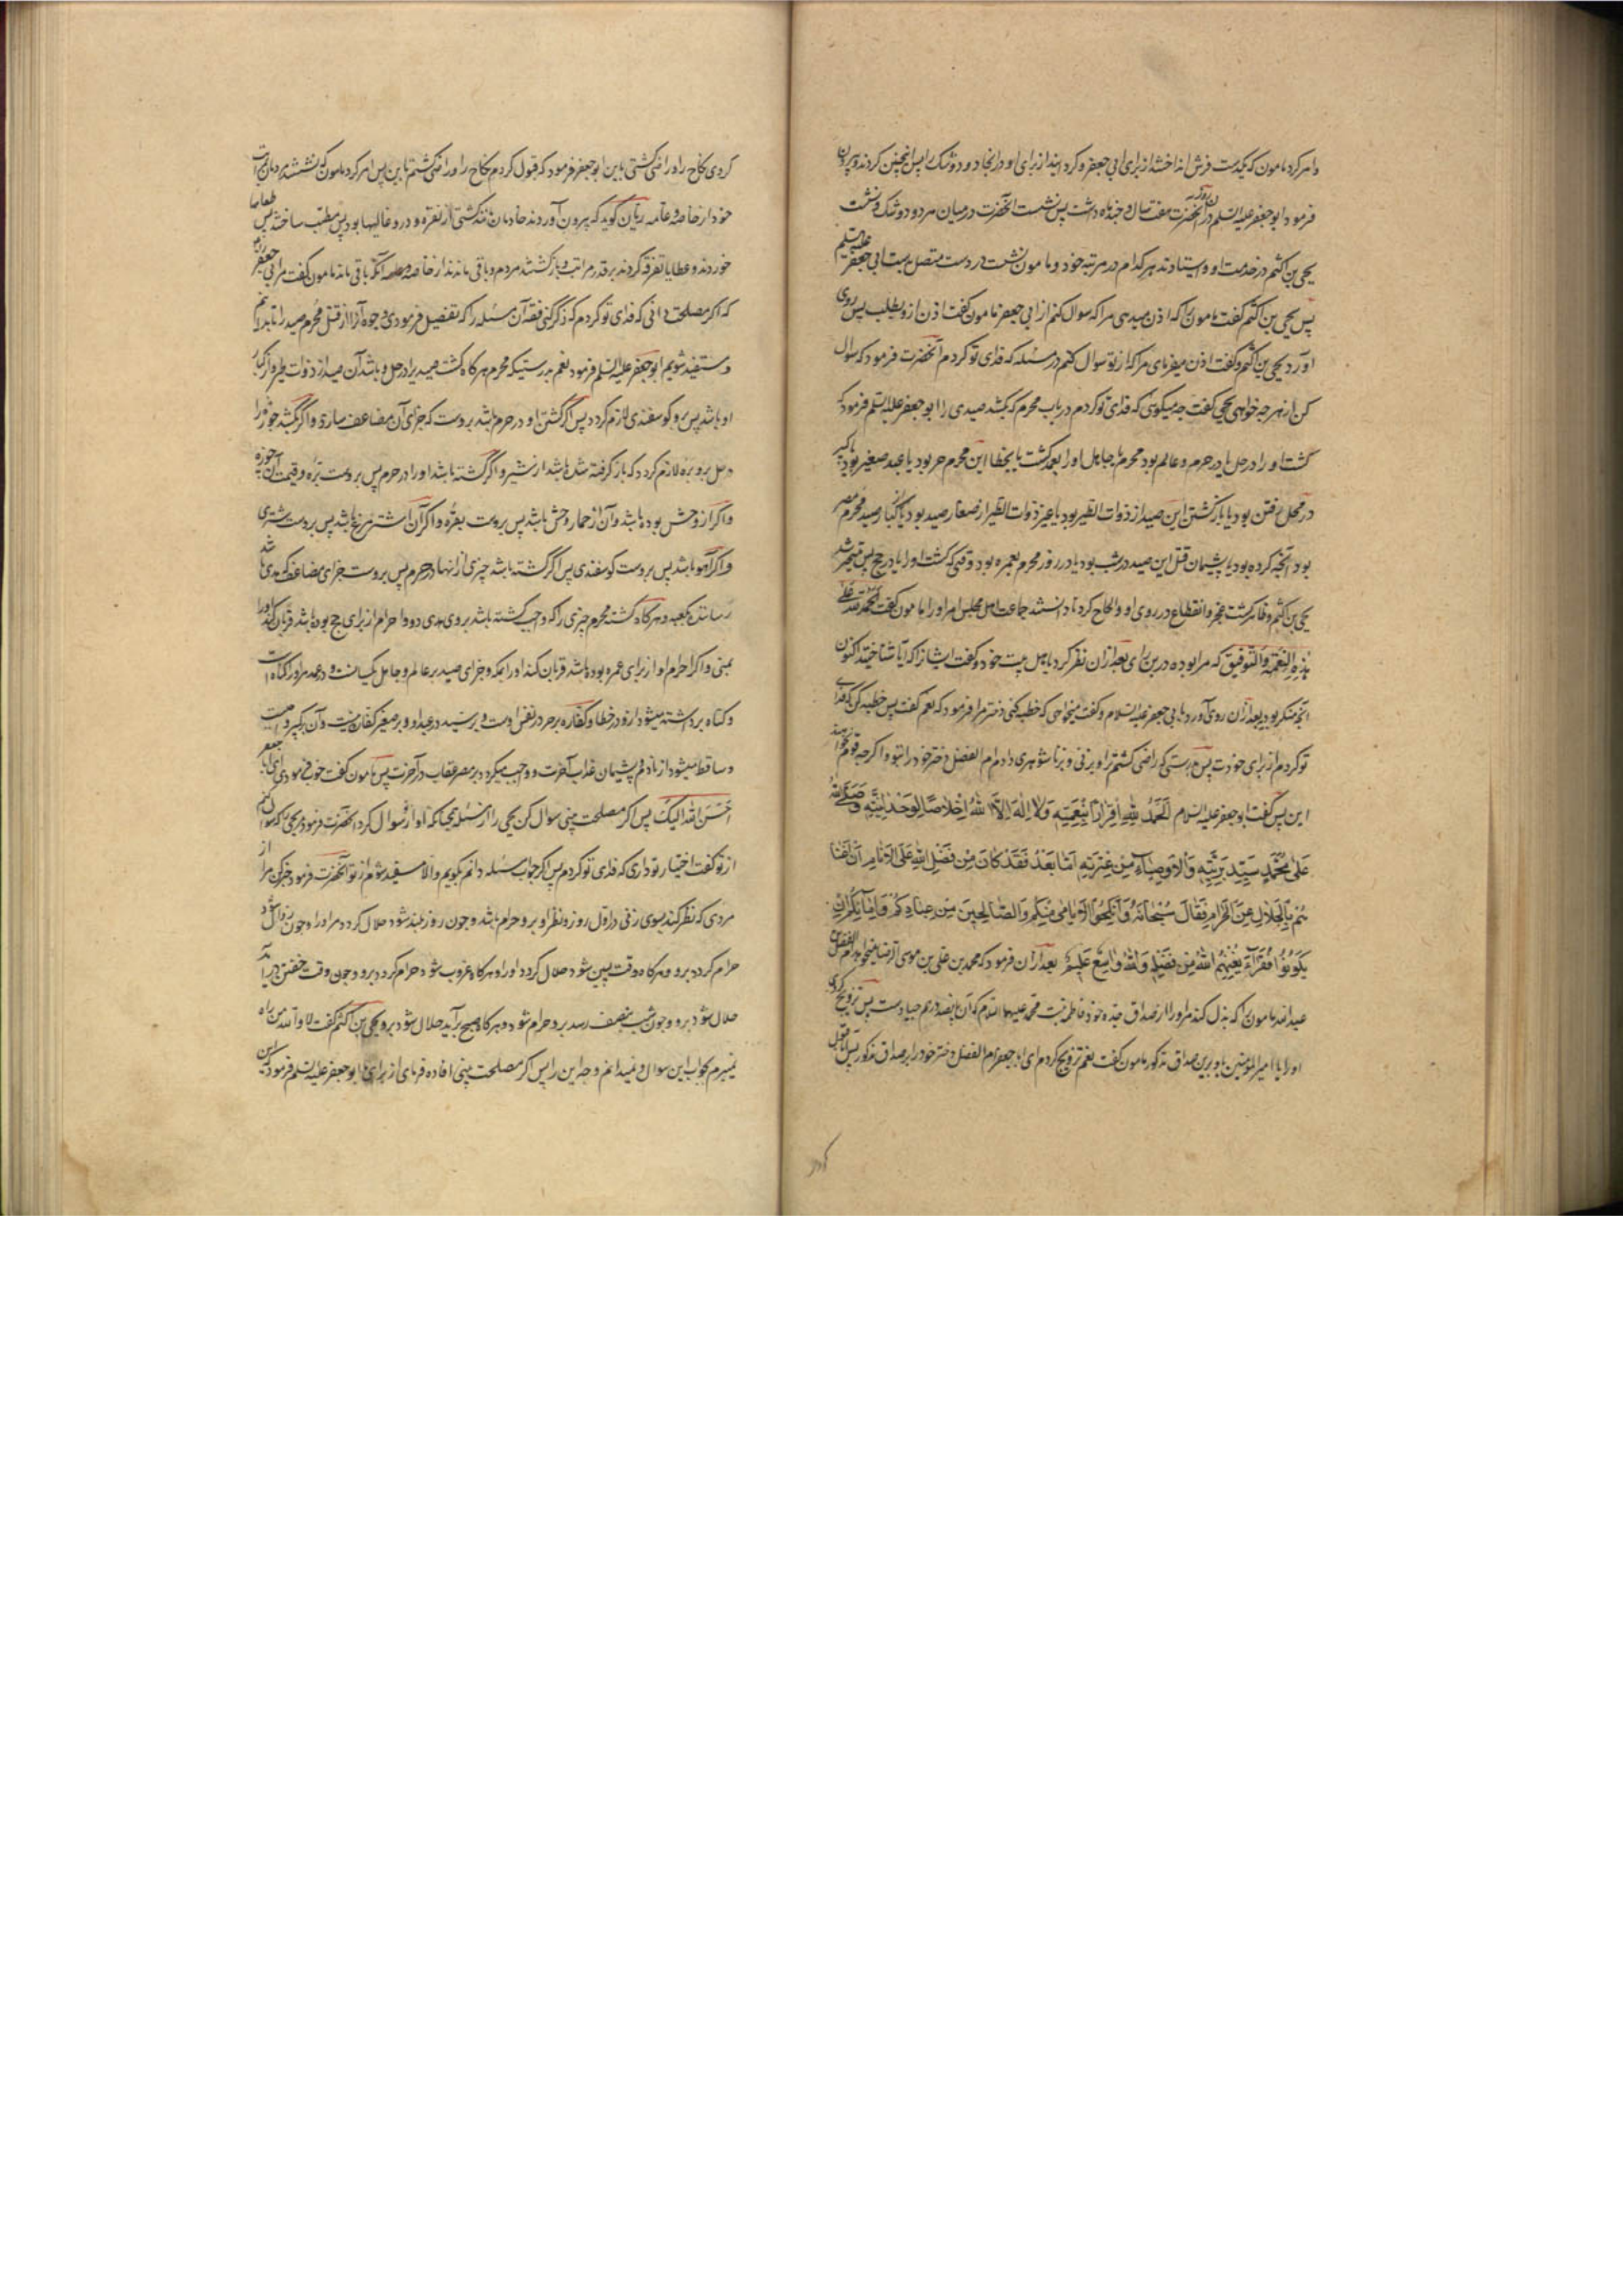 وامر کرد مامون که یکدست فرش انداختند از برای ابی جعفر و کردانیدند از برای او در انجا دو دوشک را پس انچنین کردند و بیرون
فرمود ابو جعفر علیه السلم در آن روز آنحضرت هفت سال و چند ماه داشت پس نشست آنحضرت در میان هر دو دوشک و نشست
یحیی بن اکثم در خدمت او و ایستادند هر کدام در مرتبه خود و مامون نشست در دست متصل بدست ابی جعفر علیه السلم
پس یحیی بن اکثم گفت مامون را که اذن میدهی مرا که سوال کنم از ابی جعفر مامون گفت اذن ازو بطلب پس روی
آورد یحیی بن اکثم و گفت اذن میفرمای مرا که از تو سوال کنم در مسئله که فدای تو کردم آنحضرت فرمود که سوال
کن از هر چه خواهی یحیی گفت چه میکوئی که فدای تو کردم در باب محرم که بکشد صیدی را ابو جعفر علیه السلم فرمود که
کشت او را در حل یا در حرم و عالم بود محرم یا جاهل او را بعمد کشت یا بخطا این محرم حر بود یا عبد صغیر بود یا کبیر
در محل رفتن بود یا بازکشتن این صید از ذوات الطیر بود یا غیر ذوات الطیر از صغار صید بود یا از کبار صید محرم مصر
بود آنچه کرده بود یا پشیمان قتل این صید در شب بود یا در روز محرم بعمره بود وقتی که کشت او را یا در حج پس متحیر شد
یحیی بن اکثم و ظاهر کشت عجز و انقطاع در روی او والحاح کرد تا دانستند جماعت اهل مجلس امر او را مامون گفت الحمد لله علی
هذه النعمة والتوفیق که مرا بوده درین رای بعد از آن نظر کرد باهل بیت خود و گفت ایشانرا که آیا شناختید اکنون
آنچه منکر بودید بعد از آن روی آورد بابی جعفر علیه السلام و گفت میخواهی که خطبه کنی دختر مرا فرمود که نعم گفت پس خطبه کن که فدای
تو کردم از برای خودت پس بدرستی که راضی کشتم ترا و بزنی و زناشوهری دادم ام الفضل دختر خود را بتو و اگر چه قوم نخواهند
این پس گفت ابو جعفر علیه السلام اَلْحَمْدُ لِلّٰهِ اِقْرَارًا بِنِعْمَتِهِ وَلَا اِلٰهَ اِلَّا اللهُ اِخْلَاصًا لِوَحْدَانِیَّتِهِ وَصَلَّی اللهُ
عَلٰی مُحَمَّدٍ سَیِّدِ بَرِیَّتِهِ وَالْاَوْصِیَاءِ مِنْ عِتْرَتِهِ اَمَّا بَعْدُ فَقَدْ کَانَ مِنْ فَضْلِ اللهِ عَلَی الْاَنَامِ اَنْ اَغْنَا
هُمْ بِالْحَلَالِ عَنِ الْحَرَامِ فَقَالَ سُبْحَانَهُ وَاَنْکِحُوا الْاَیَامٰی مِنْکُمْ وَالصَّالِحِینَ مِنْ عِبَادِکُمْ وَاِمَائِکُمْ اِنْ
یَکُونُوا فُقَرَآءَ یُغْنِهِمُ اللهُ مِنْ فَضْلِهِ وَاللهُ وَاسِعٌ عَلِیمٌ بعد از آن فرمود که محمد بن علی بن موسی الرضا میخواهد ام الفضل
عبد الله مامون را که بذل کند مر او را از صداق جده خود فاطمه بنت محمد علیها السلام که آن پانصد درهم جیاد ست پس تزویج کردی
او را یا امیر المؤمنین باو برین صداق مذکور مامون گفت نعم تزویج کردم ای ابا جعفر ام الفضل دختر خود را بر صداق مذکور پس آیا قبول
کردی نکاح را و راضی کشتی باین ابو جعفر فرمود که قبول کردم نکاح را و راضی کشتم باین پس امر کرد مامون که نشستند مردمان بر مراتب
خود از خاصه و عامه ریان کوید که بیرون آوردند خادمان مانند کشتی از نقره و درو غالیها بود پس مطیب ساختند پس طعاما
خوردند و عطایا تفرقه کردند بر قدر مراتب و بازکشتند مردم و باقی ماندند از خاصه و عامه آنکه باقی ماند مامون گفت مر ابی جعفر را
که اکر مصلحت دانی که فدای تو کردم که ذکر کنی فقه آن مسئله را که تفصیل فرمودی وجوه آنرا از قتل محرم صید را تا بدانیم
و مستفید شویم ابو جعفر علیه السلم فرمود نعم بدرستیکه محرم هر کاه کشت صید را در حل و باشد آن صید از ذوات طیر و از کبار
او باشد پس برو کوسفندی لازم کردد پس اگر کشتن او در حرم باشد بروست که جزای آن مضاعف سازد و اگر بکشد جوزه را
در حل برو بره لازم کردد که باز گرفته شده باشد از شیر و اگر کشته باشد او را در حرم پس بروست بره و قیمت آن جوزه
و اگر از وحش بوده باشد و آن از حمار وحش باشد پس بروست بقره و اگر آن اشتر مرغ باشد پس بروست شتری
و اگر آهو باشد پس بروست کوسفندی پس اگر کشته باشد چیزی از انها در حرم پس بروست جزای مضاعف که هدی باشد
رسانده بکعبه و هر کاه کشته محرم چیزی را که واجب کشته باشد بروی هدی درو و احرام از برای حج بوده باشد قربان کند او را
بمنی و اگر احرام او از برای عمره بوده باشد قربان کند او را بمکه و جزای صید بر عالم و جاهل یکسانست و در عمد مر او را گناه است
و گناه برداشته میشود ازو در خطا و کفاره بر حر در نفس اوست و بر سید در عبد او و بر صغیر کفاره نیست و آن بر کبیر واجبست
و ساقط میشود از نادم پشیمان عذاب آخرت و واجب میکردد بر مصر عقاب در آخرت پس مامون گفت خوب فرمودی ای ابا جعفر
اَحْسَنَ اللهُ اِلَیْکَ پس اگر مصلحت بینی سوال کن یحیی را از مسئله همچنانکه او از تو سوال کرد آنحضرت فرمود یحیی را که سوال کنم
از تو گفت اختیار تو داری که فدای تو کردم پس اکر جواب مسئله دانم بکویم والا مستفید شوم از تو آنحضرت فرمود خبر کن مرا از
مردی که نظر کند بسوی زنی در اول روز و نظر او برو حرام باشد و چون روز بلند شود حلال کردد مر او را و چون زوال شود
حرام کردد برو و هر کاه وقت پسین شود حلال کردد او را و هر کاه غروب شود حرام کردد برو و چون وقت خفتن در آید
حلال شود برو و چون شب بنصف رسد برو حرام شود و هر کاه صبح برآید حلال شود برو یحیی بن اکثم گفت لا والله من راه
نمیبرم بجواب این سوال و نمیدانم وجه این را پس اکر مصلحت بینی افاده فرمای از برای ما ابو جعفر علیه السلم فرمود که این